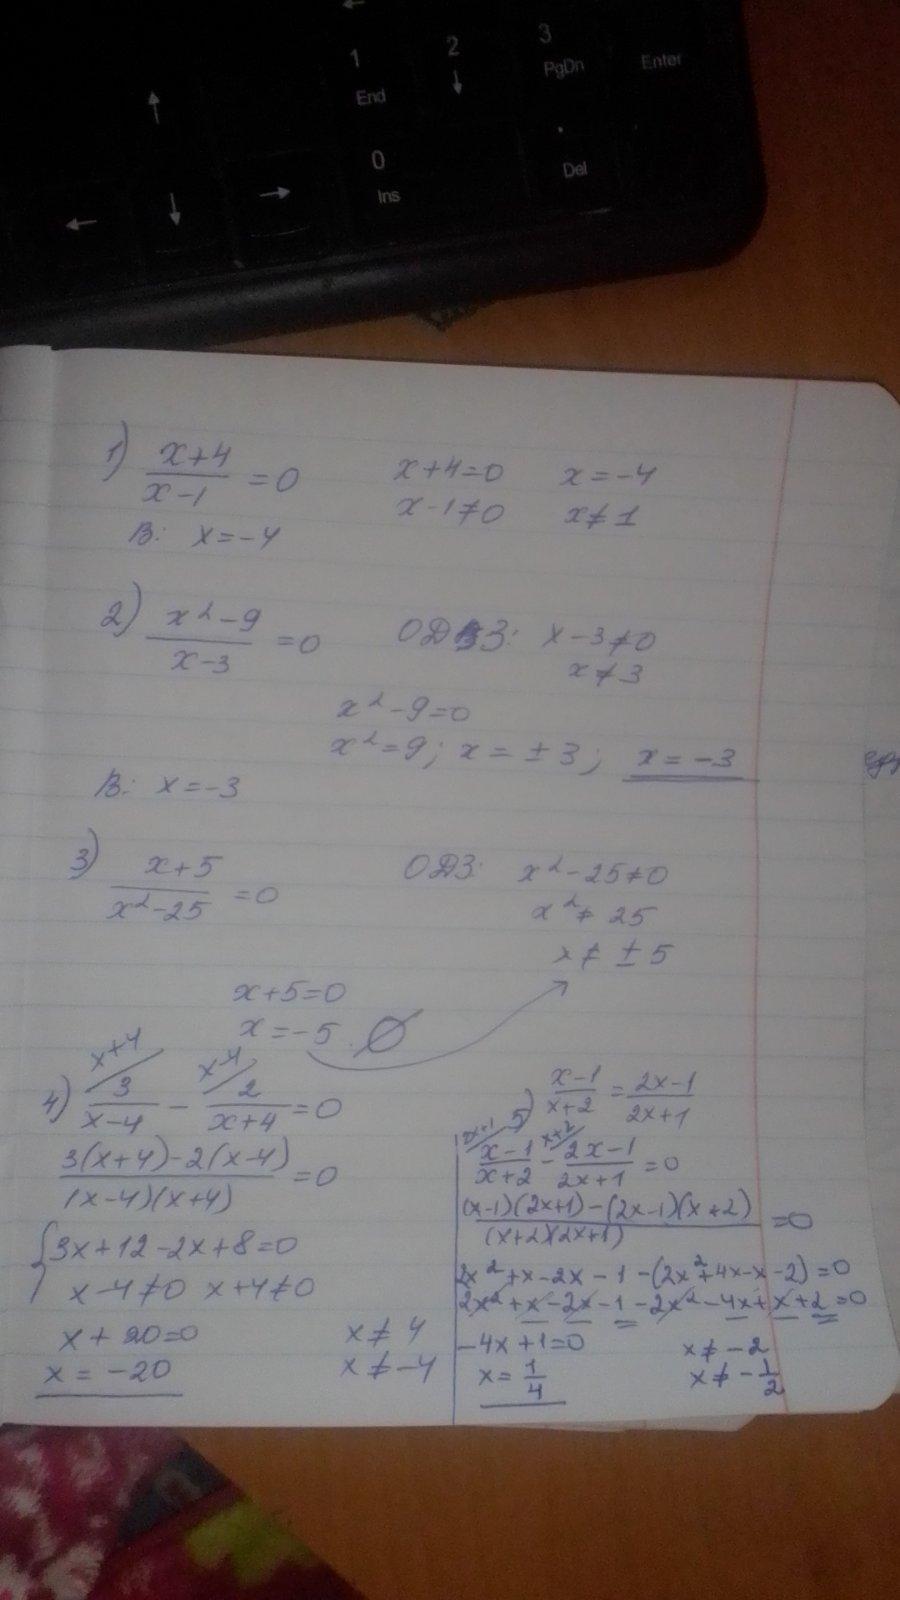 ←
1 2 3
End ↓ PgDn Enter
↑
0 .
Ins Del
← ↓ →
1) x+4/x-1 = 0 x+4=0 x=-4
x-1≠0 x≠1
В: x=-4
2) x²-9/x-3 = 0 ОДЗ: x-3≠0
x≠3
x²-9=0
x²=9; x=±3; x=-3
В: x=-3
3) x+5/x²-25 = 0 ОДЗ: x²-25≠0
x²≠25
x≠±5
x+5=0
x=-5. ∅
x+4 x-4
4) 3/x-4 - 2/x+4 = 0
3(x+4)-2(x-4)/(x-4)(x+4) = 0
{3x+12-2x+8=0
x-4≠0 x+4≠0
x+20=0 x≠4
x=-20 x≠-4
5) x-1/x+2 = 2x-1/2x+1
2x+1 x+2
x-1/x+2 - 2x-1/2x+1 = 0
(x-1)(2x+1)-(2x-1)(x+2)/(x+2)(2x+1) = 0
2x²+x-2x-1-(2x²+4x-x-2)=0
2x²+x-2x-1-2x²-4x+x+2=0
-4x+1=0 x≠-2
x=1/4 x≠-1/2